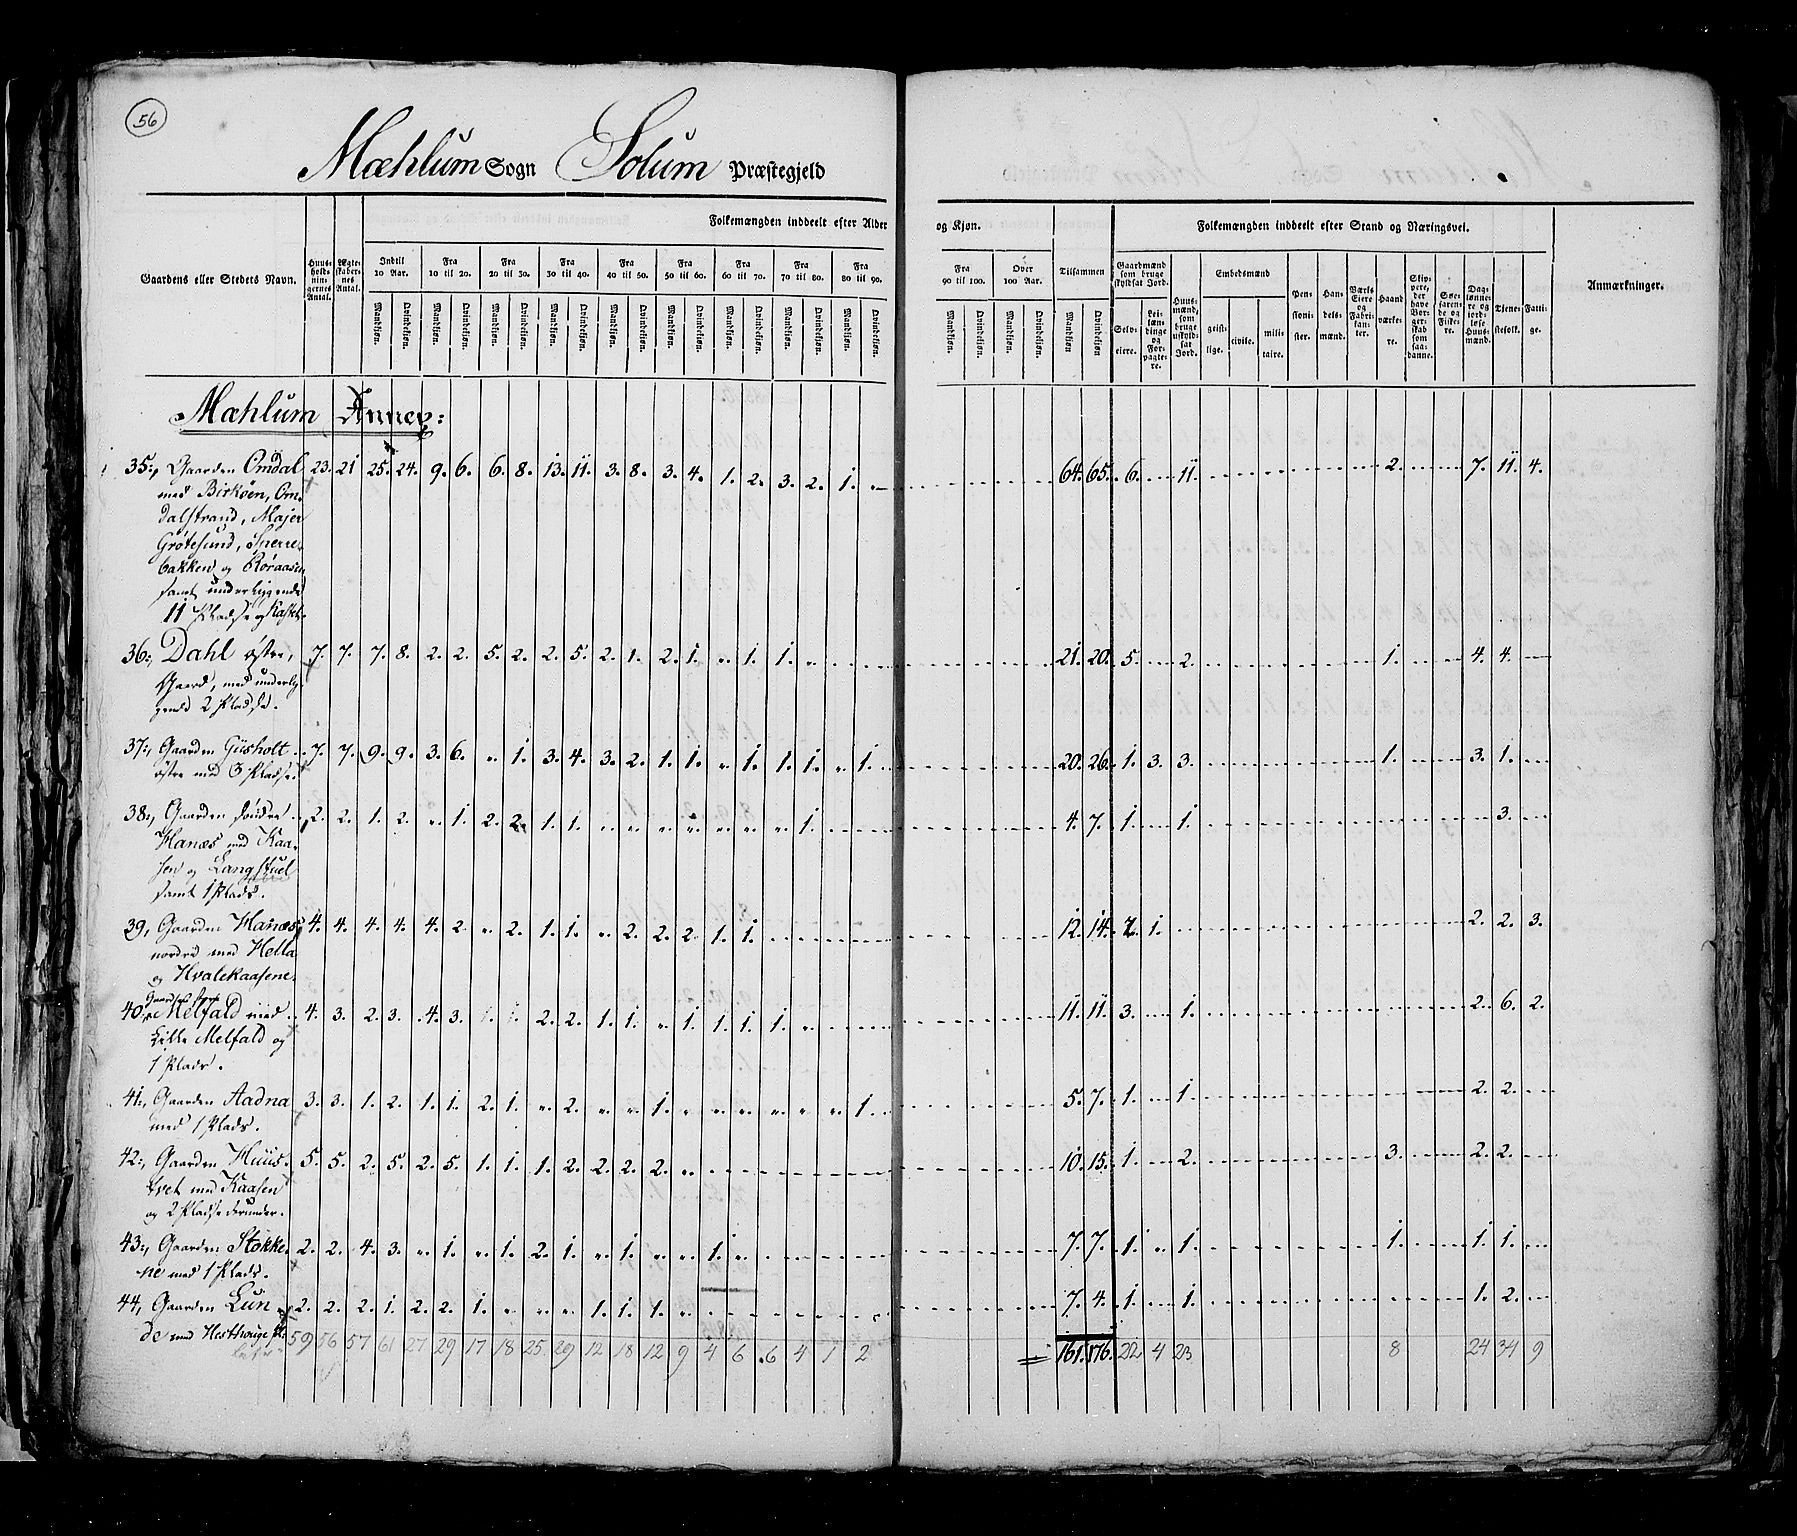 56
Mæhlum Sogn Solum Præstegjeld
Folkemængden inddeelt efter Alder
og Kjøn.
Folkemængden inddeelt efter Stand og Næringsvei.
Gaardens eller Stedets Navn.
Huusholdningernes Antal.
Ægteskabernes Antal.
Indtil 10 Aar.
Fra 10 til 20.
Fra 20 til 30.
Fra 30 til 40.
Fra 40 til 50.
Fra 50 til 60.
Fra 60 til 70.
Fra 70 til 80.
Fra 80 til 90.
Fra 90 til 100.
Over 100 Aar.
Tilsammen
Mandkjøn. Qvindekjøn.
Gaardmænd som bruge skyldsat Jord.
Selveiere.
Leilændinge og Forpagtere.
Huusmænd, som bruge uskyldsat Jord.
Embedsmænd
geistlige. civile. militaire.
Pensionister.
Handelsmænd.
Værks Eiere og Fabrikanter.
Haandværkere.
Skippere, der have Borgerskab som saadanne.
Søefarende og Fiskere.
Daglønnere og jordløse Huusmænd.
Tjenestefolk.
Fattige.
Anmærkninger.
Mæhlum Annex:
35:, Gaarden Omdal 23. 21 25. 24. 9. 6. 6. 8. 13. 11. 3. 8. 3. 4. 1. 2. 3. 2. 1. 64. 65. 6. 11. 2. 7. 11. 4.
med Birkøen, Om-
dalstrand, Majer
Grøtesund, Sperre-
bakken og Røraasen
samt underliggende
11 Pladse og
36:, Dahl østre, 7. 7. 7. 8. 2. 2. 5. 2. 2. 5. 2. 1. 2. 1. " 1. 1. " 21. 20. 5. 2. 1. 4. 4.
Gaard, med underlig-
gende 2 Pladse.
37:, Gaarden Giisholt 7. 7. 9. 9. 3. 6. " 1. 3. 4. 3. 2. 1. 1. " 1. 1. 1. " 1. 20. 26. 1. 3. 3. 1. 3. 1.
østre med 3 Pladse.
38:, Gaarden søndre 2. 2. 1. 2. " 1. 2. 2. 1. 1. " " " " " " " 1. 4. 7. 1. 1. 3.
Hanæs med Kaa-
sen og Langstuel
samt 1 Plads.
39, Gaarden Hanæs 4. 4. 4. 4. 4. 2. " 2. 1. 1. " 2. 2. 2. 1. 1. 12. 14. 2. 1. 2. 2. 3.
nordre med Hella
og Hvalekaasene.
Gaarden store
40, Melfald med 4. 3. 2. 3. 4. 3. 1. 1. 2. 2. 1. 1. " 1. 1. 1. 1. " 11. 11. 3. 1. 2. 6. 2.
Lille Melfald og
1 Plads.
41:, Gaarden Aadna 3. 3. 1. 2. 1. 1. 2. 1. " 2. " " 1. " " " " " " 1. 5. 7. 1. 1. 2. 2.
med 1 Plads.
42:, Gaarden Huus- 5. 5. 2. 5. 2. 5. 1. 1. 1. 2. 2. 2. 2. " 10. 15. 1. 2. 3. 2. 2.
tvet med Kaasen
og 2 Pladse derunder.
43:, Gaarden Stokke- 2. 2. 4. 3. " 1. " 1. 2. 1. " 1. " " 1. " 7. 7. 1. " 1. 1. 1. 1.
ne med 1 Plads.
44, Gaarden Lun 2. 2. 2. 1. 2. 2. 1. " " " 1. 1. 1. " 7. 4. 1. 1. 1. 2.
de med
59 56 57 61 27 29 17 18 25 29 12 18 12 9 4 6 6 4 1 2 161. 176. 22 4 23 8 24 34 9